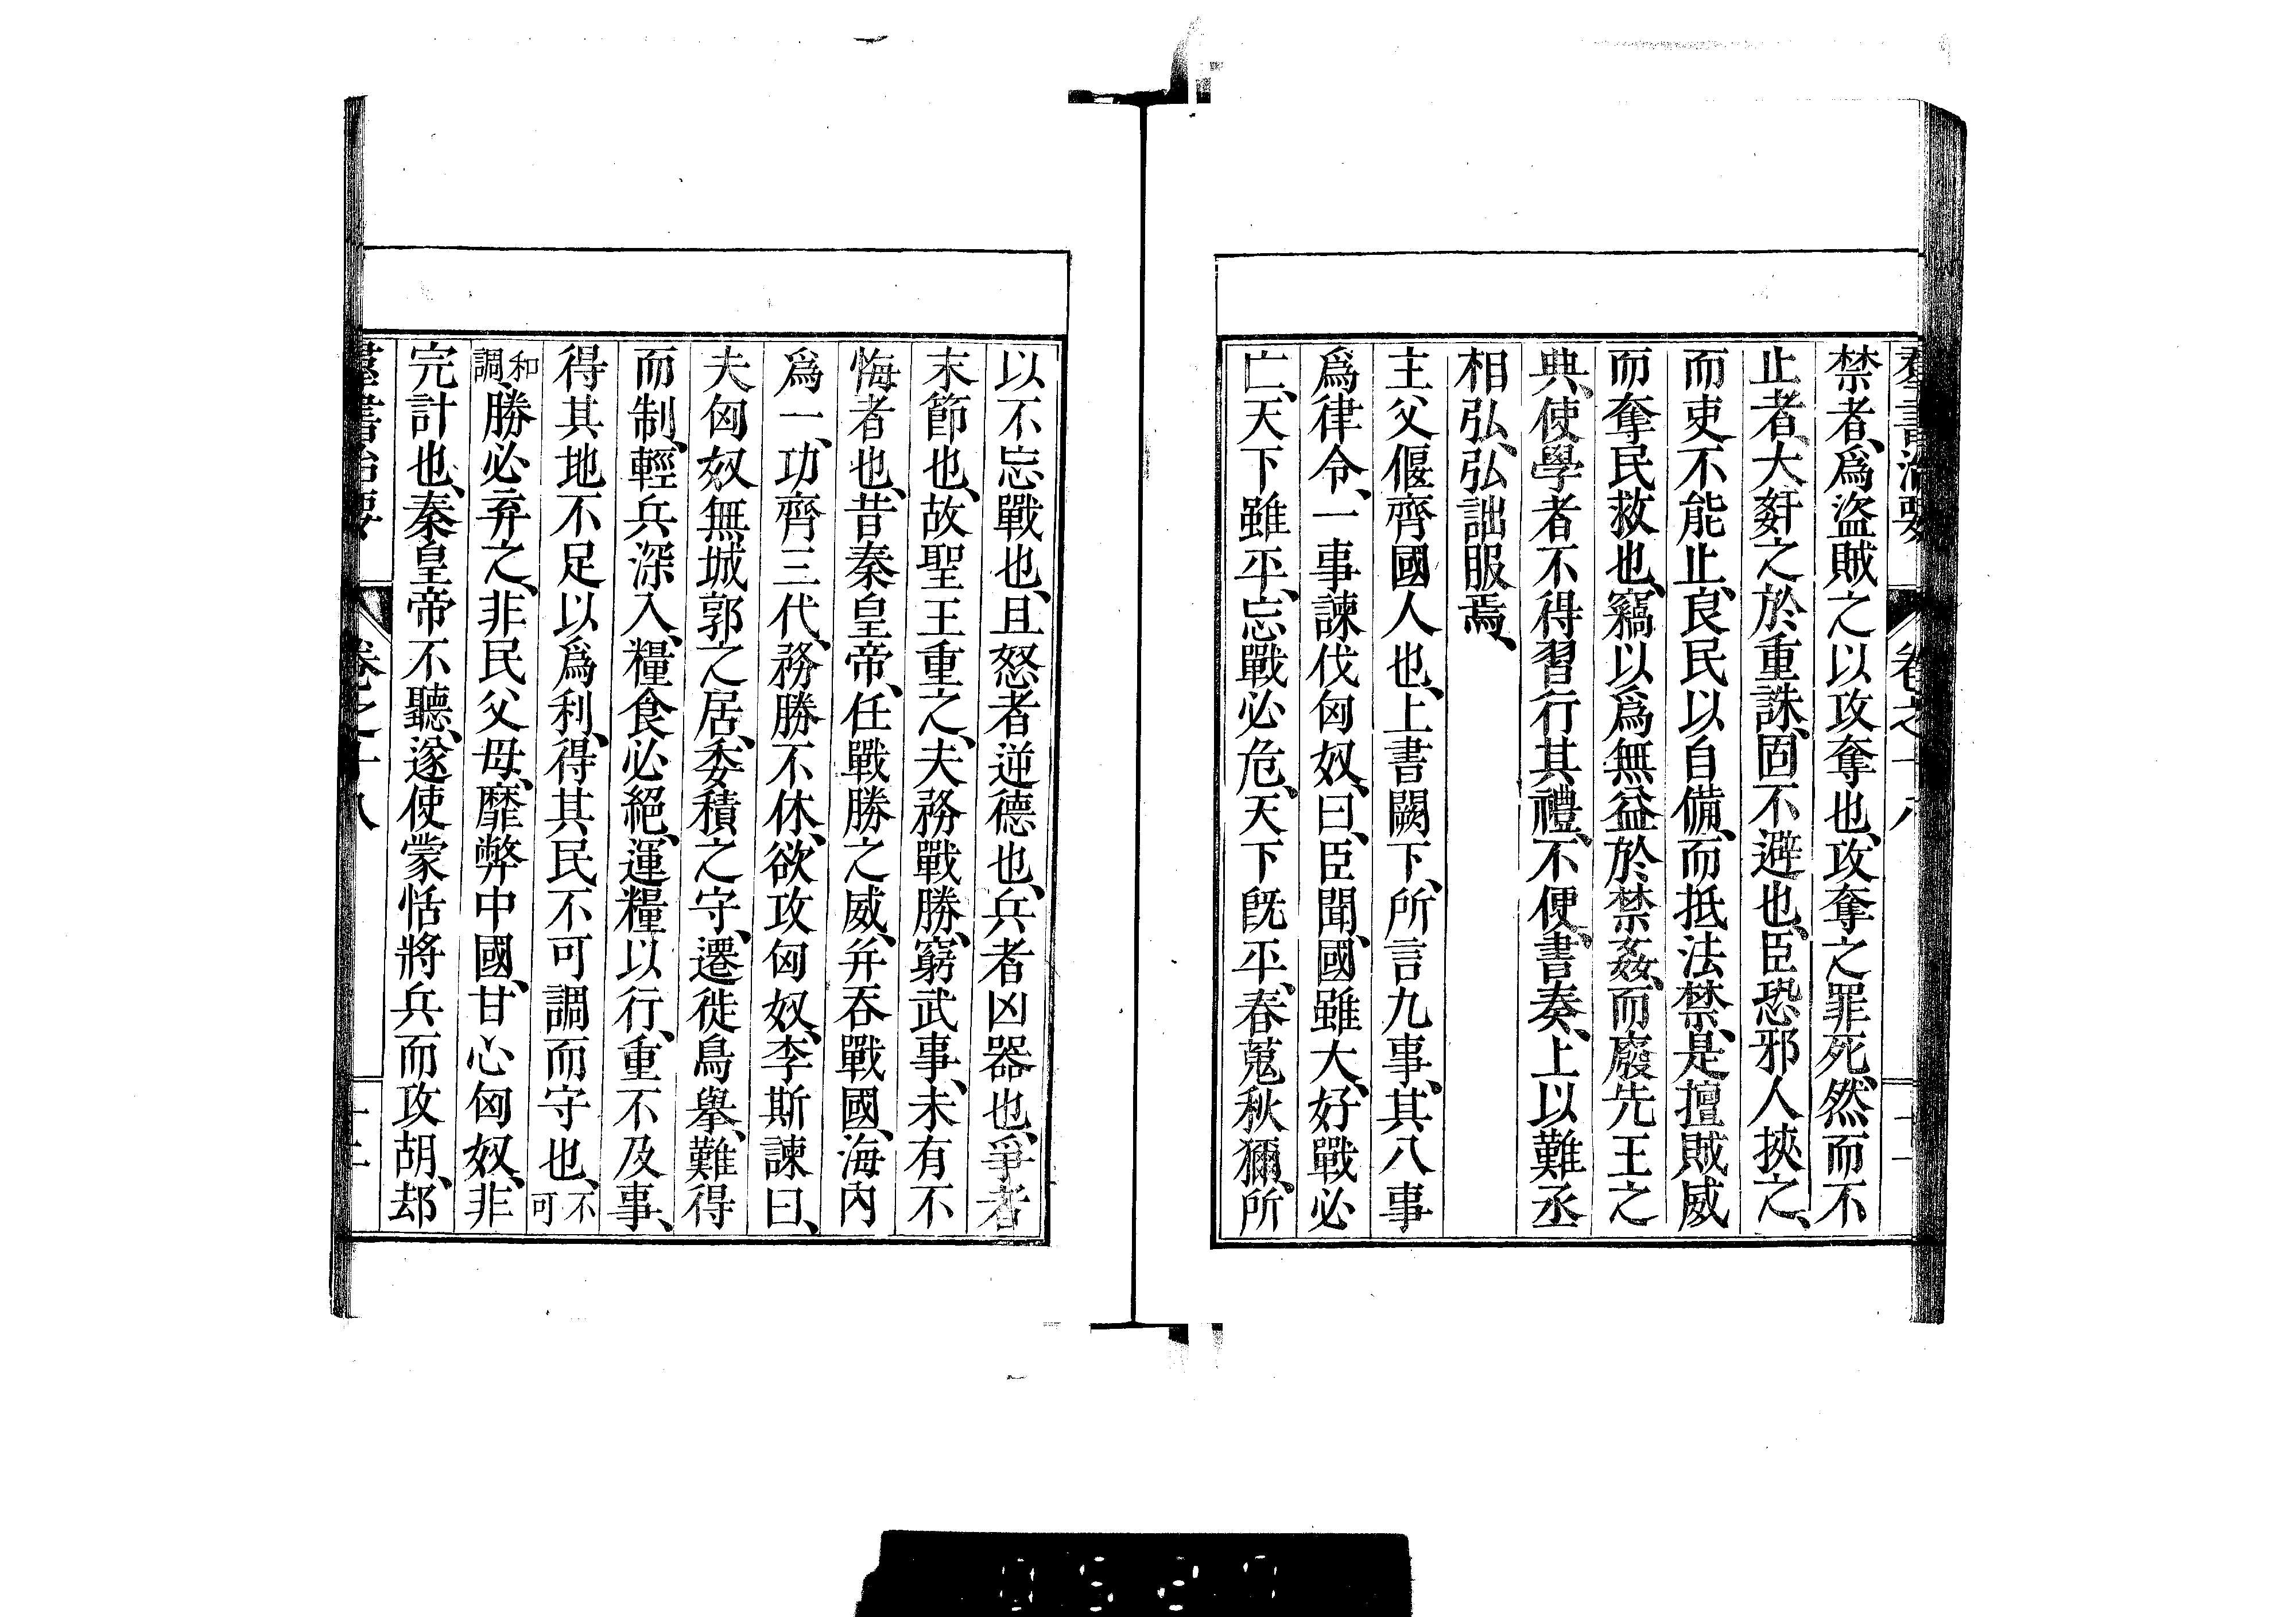 羣書治要 卷之十八
禁者、爲盜賊之以攻奪也、攻奪之罪死、然而不
止者、大姧之於重誅、固不避也、臣恐邪人挾之、
而吏不能止、良民以自備、而抵法禁、是擅賊威
而奪民救也、竊以爲無益於禁姦、而廢先王之
典、使學者不得習行其禮、不便、書奏、上以難丞
相弘、弘詘服焉、
主父偃齊國人也、上書闕下、所言九事、其八事
爲律令、一事諫伐匈奴、曰、臣聞、國雖大、好戰必
亡、天下雖平、忘戰必危、天下旣平、春蒐秋獮、所
以不忘戰也、且怒者逆德也、兵者凶器也、爭者
末節也、故聖王重之、夫務戰勝、窮武事、未有不
悔者也、昔秦皇帝、任戰勝之威、幷吞戰國、海內
爲一、功齊三代、務勝不休、欲攻匈奴、李斯諫曰、
夫匈奴無城郭之居、委積之守、遷徙鳥擧、難得
而制、輕兵深入、糧食必絕、運糧以行、重不及事、
得其地不足以爲利、得其民不可調而守也、不可
和調、勝必弃之、非民父母、靡弊中國、甘心匈奴、非
完計也、秦皇帝不聽、遂使蒙恬將兵而攻胡、却
羣書治要 卷之十八